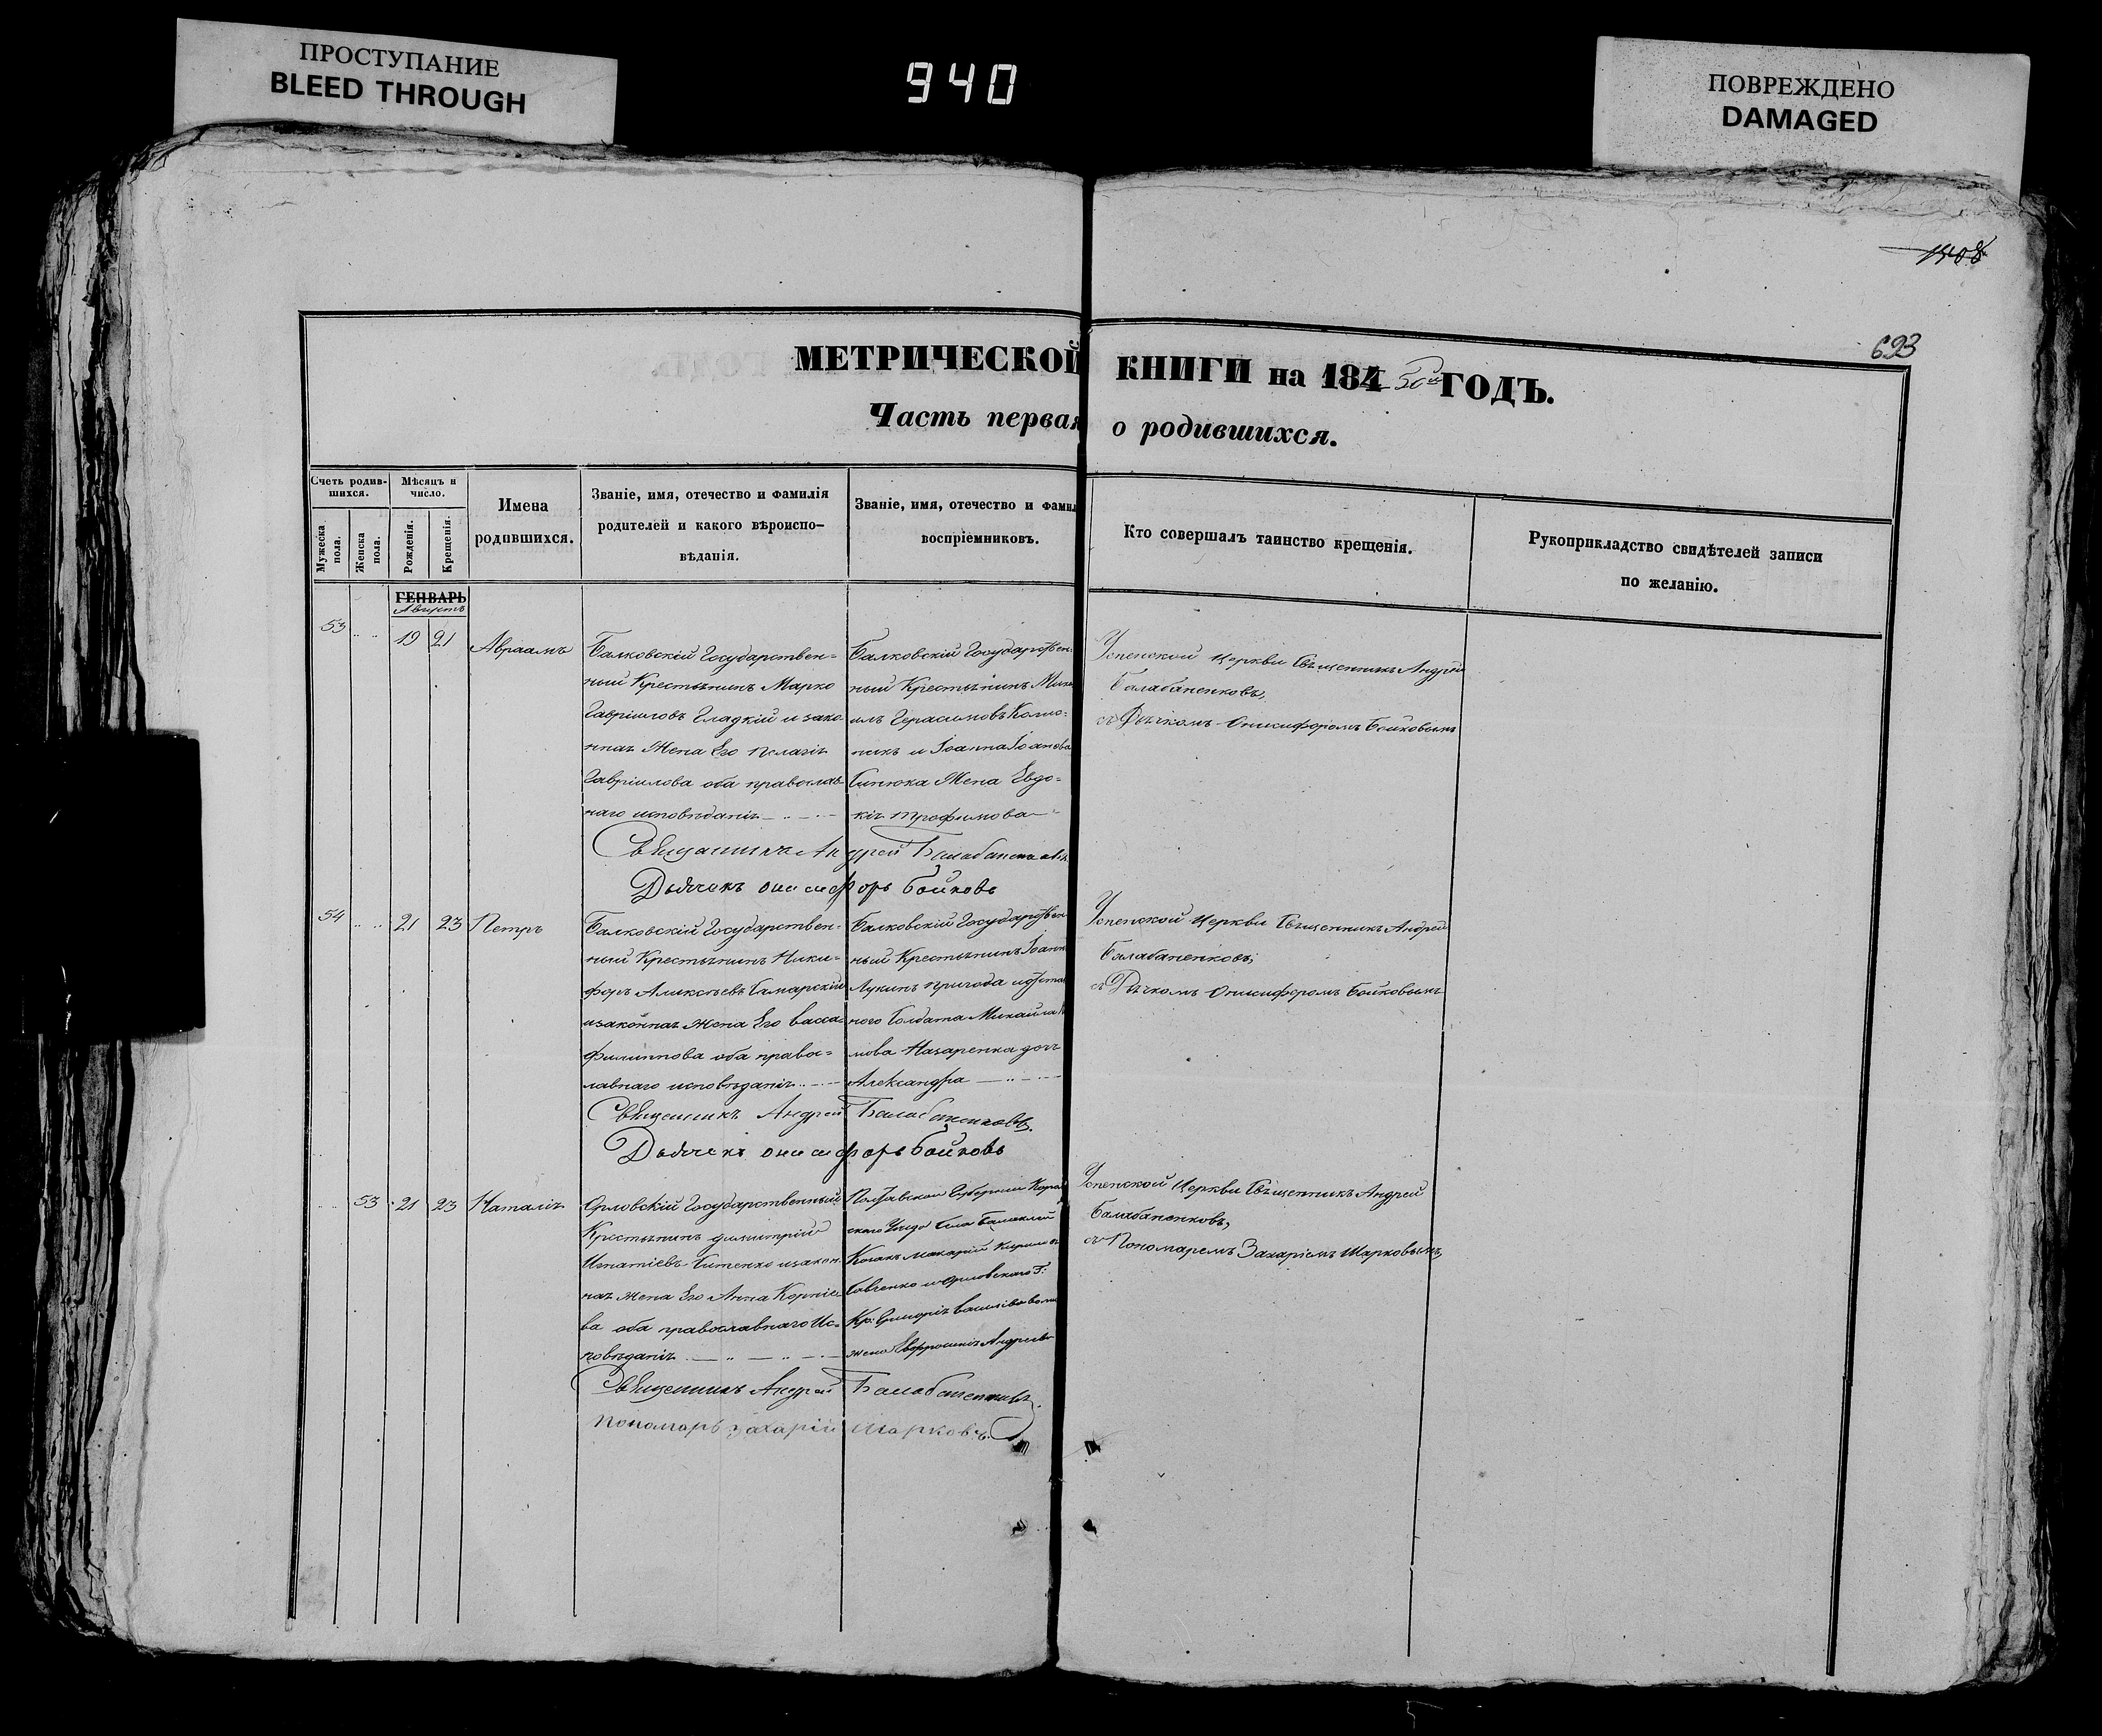 ПРОСТУПАНИЕ
BLEED THROUGH
940
ПОВРЕЖДЕНО
DAMAGED
1408
693
МЕТРИЧЕСКОЙ КНИГИ на 184 50й ГОДЪ.
Часть первая о родившихся.
Счетъ родив-
шихся.
Мужеска пола.
Женска пола.
Мѣсяцъ и число.
Рожденія.
Крещенія.
Имена
родившихся.
Званіе, имя, отечество и фамилія
родителей и какого вѣроиспо-
вѣданія.
Званіе, имя, отечество и фамил
воспріемниковъ.
Кто совершалъ таинство крещенія.
Рукоприкладство свидѣтелей записи
по желанію.
ГЕНВАРЬ
Августъ
53
19 21
Авраамъ
Балковскій Государствен=
ный Крестьянинъ Марко
Гавріиловъ Гладкій и зако-
нная Жена Его Пелагія
Гавріилова оба православ-
наго исповѣданія
Балковскій Государствен-
ный Крестьянинъ Миха
илъ Герасимовъ
и Іоанна Іоанова
Жена Евдо=
кія Трофимова
Успенской Церкви Священникъ Андрей
Балабаненковъ,
съ Дьячкомъ Онисифоромъ Бойковымъ
Священникъ Андрей Балабаненковъ
Дьячекъ Онисифоръ Бойковъ
54
21 23
Петръ
Балковскій Государствен-
ный Крестьянинъ Ники=
форъ Алексѣевъ Самарскій
и законная жена Его Васса
Филиппова оба правос=
лавнаго исповѣданія
Балковскій Государствен
ный Крестьянинъ Іоанн
Лукинъ Пригода
Солдата Михаила
Назаренка дочь
Александра
Успенской Церкви Священникъ Андрей
Балабаненковъ;
съ Дьячкомъ Онисифоромъ Бойковымъ
Священникъ Андрей Балабаненковъ.
Дьячекъ Онисифоръ Бойковъ
53
21 23
Наталія
Орловскій Государственный
Крестьянинъ Димитрій
Игнатіевъ Ситенко и закон-
ная жена Его Анна Корніе
ва оба православнаго Ис=
повѣданія
Полтавской Губерніи
Уѣзда Села Балаклей
Козакъ Макарій Кириловъ
Савченко и Орловскаго Г:
Кр:
жена Евфросинія Андреева
Успенской Церкви Священникъ Андрей
Балабаненковъ,
съ Пономаремъ Захаріемъ Шарковымъ
Священникъ Андрей Балабаненковъ.
Пономарь Захарій Шарковъ.